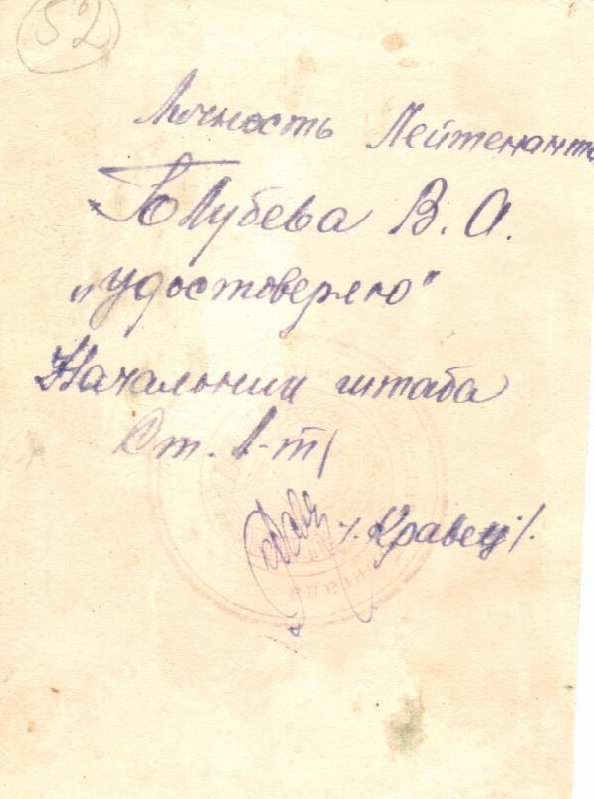 52
Личность Лейтенанта
Голубева В. А.
„удостоверяю"
Начальник штаба
Ст. Л-т/
/. Кравец /.